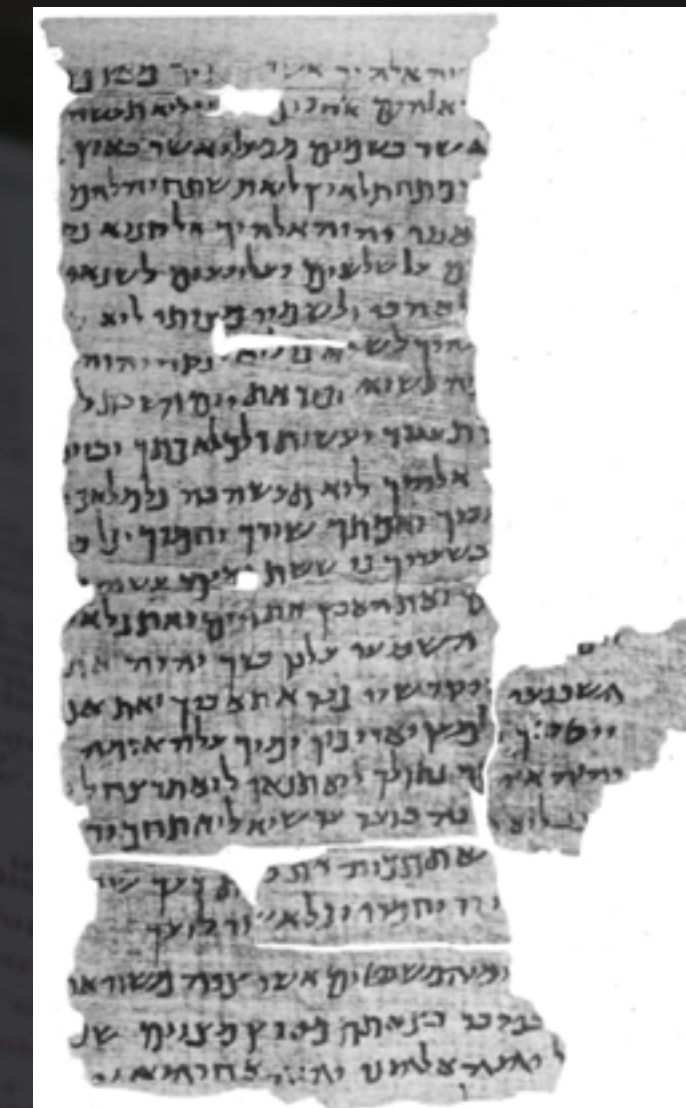 יהוה אלהיך אשר תיך מארץ מ
אלהים אחרים ני לוא תעשה
אשר בשמים ממעל ואשר בארץ
מתחת לארץ לוא תשתחוה להם
יהוה אלהיך אל קנוא
ם על שלשים ועל רבעים לשנאי
לאהבי ולשמרי מצותי לוא
להיך לשוא כי לוא ינקה יהוה
לשוא זכור את יום השבת ל
תעבוד ועשית כל מלאכתך וביום
אלהיך לוא תעשה בה כל מלאכה
עבדך ואמתך שורך וחמרך וכל ב
בשעריך כי ששת ימים עשה
ם ואת הארץ את הים ואת כל א
השביעי על כן ברך יהוה את
השביעי ויקדשו כבד את אביך ואת אמ
ייטב לך ולמען יאריכון ימיך על האדמה
יהוה אלהיך נתן לך לוא תנאף לוא תרצח לו
לוא ענה ברעך עד שוא לוא תחמוד
תתאוה את ב ת רעך שד
ורו וחמרו וכל אשר לרעך
ים והמשפטים אשר צוה משה את
במדבר בצאתם מארץ מצרים שמ
ל יהוה אלהינו יהוה אחד הוא